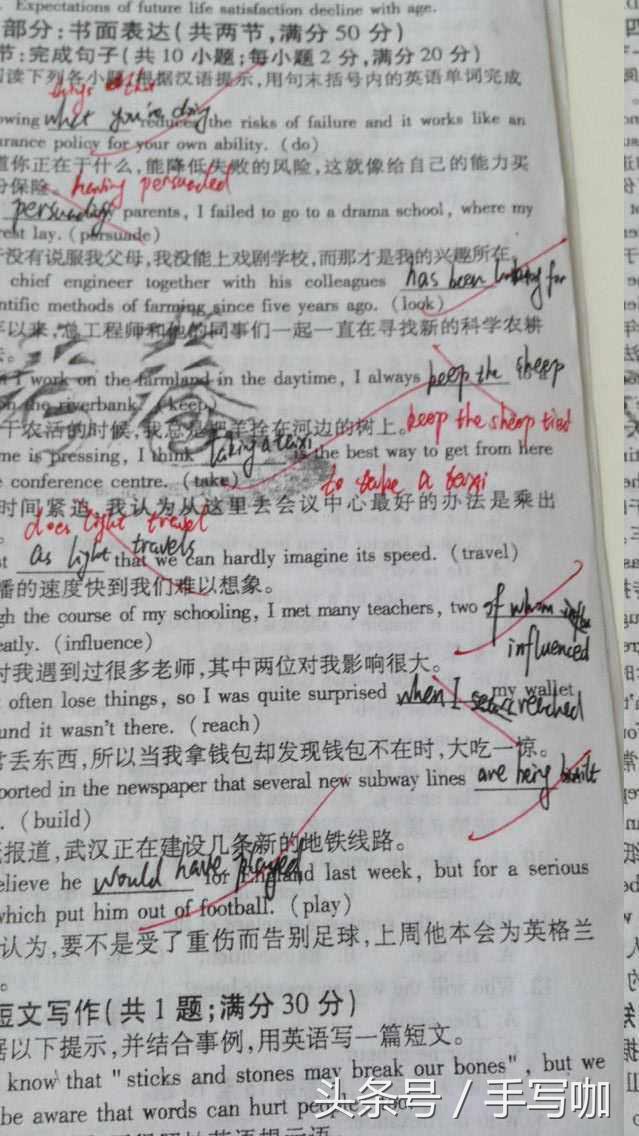 . Expectations of future life satisfaction decline with age.
部分:书面表达(共两节,满分50分)
节:完成句子(共10小题;每小题2分,满分20分)
阅读下列各小题,根据汉语提示,用句末括号内的英语单词完成
things
owing what you're doing reduces the risks of failure and it works like an
urance policy for your own ability. (do)
道你正在干什么,能降低失败的风险,这就像给自己的能力买
份保险。 having persuaded
persuading my parents, I failed to go to a drama school, where my
rest lay. (persuade)
于没有说服我父母,我没能上戏剧学校,而那才是我的兴趣所在。
chief engineer together with his colleagues has been looking for
entific methods of farming since five years ago. (look)
年以来,总工程师和他的同事们一起一直在寻找新的科学农耕
法。
n I work on the farmland in the daytime, I always keep the sheep to a
on the riverbank. (keep)
干农活的时候,我总是把羊拴在河边的树上。 keep the sheep tied
me is pressing, I think taking a taxi is the best way to get from here
e conference centre. (take) to take a taxi
时间紧迫,我认为从这里去会议中心最好的办法是乘出
。
does light travel
st as light travels that we can hardly imagine its speed. (travel)
播的速度快到我们难以想象。
gh the course of my schooling, I met many teachers, two of whom
eatly. (influence) influenced
时我遇到过很多老师,其中两位对我影响很大。
t often lose things, so I was quite surprised when I reached my wallet
und it wasn't there. (reach)
常丢东西,所以当我拿钱包却发现钱包不在时,大吃一惊。
ported in the newspaper that several new subway lines are being built
. (build)
报道,武汉正在建设几条新的地铁线路。
elieve he would have played for England last week, but for a serious
which put him out of football. (play)
认为,要不是受了重伤而告别足球,上周他本会为英格兰
。
短文写作(共1题;满分30分)
据以下提示,并结合事例,用英语写一篇短文。
know that "sticks and stones may break our bones", but we
be aware that words can hurt people
头条号 / 手写咖